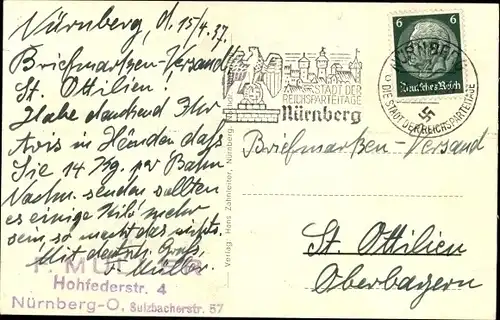 Nürnberg, d. 15/4.37.
Briefmarken-Versand
St. Ottilien!
Habe dankend Ihr
Avis in Händen daß
Sie 14 Kg. per Bahn
Nachn. senden sollten
es einige Kilo mehr
sein, so macht das nichts.
Mit deutsch. Gruß,
Müller.
Hohfederstr. 4
Nürnberg-O, Sulzbacherstr. 57
Verlag: Hans Zahnleiter, Nürnberg
STADT DER
REICHSPARTEITAGE
Nürnberg
6 6
Deutsches Reich
NÜRNBERG
DIE STADT DER REICHSPARTEITAGE
Briefmarken-Versand
St. Ottilien
Oberbayern